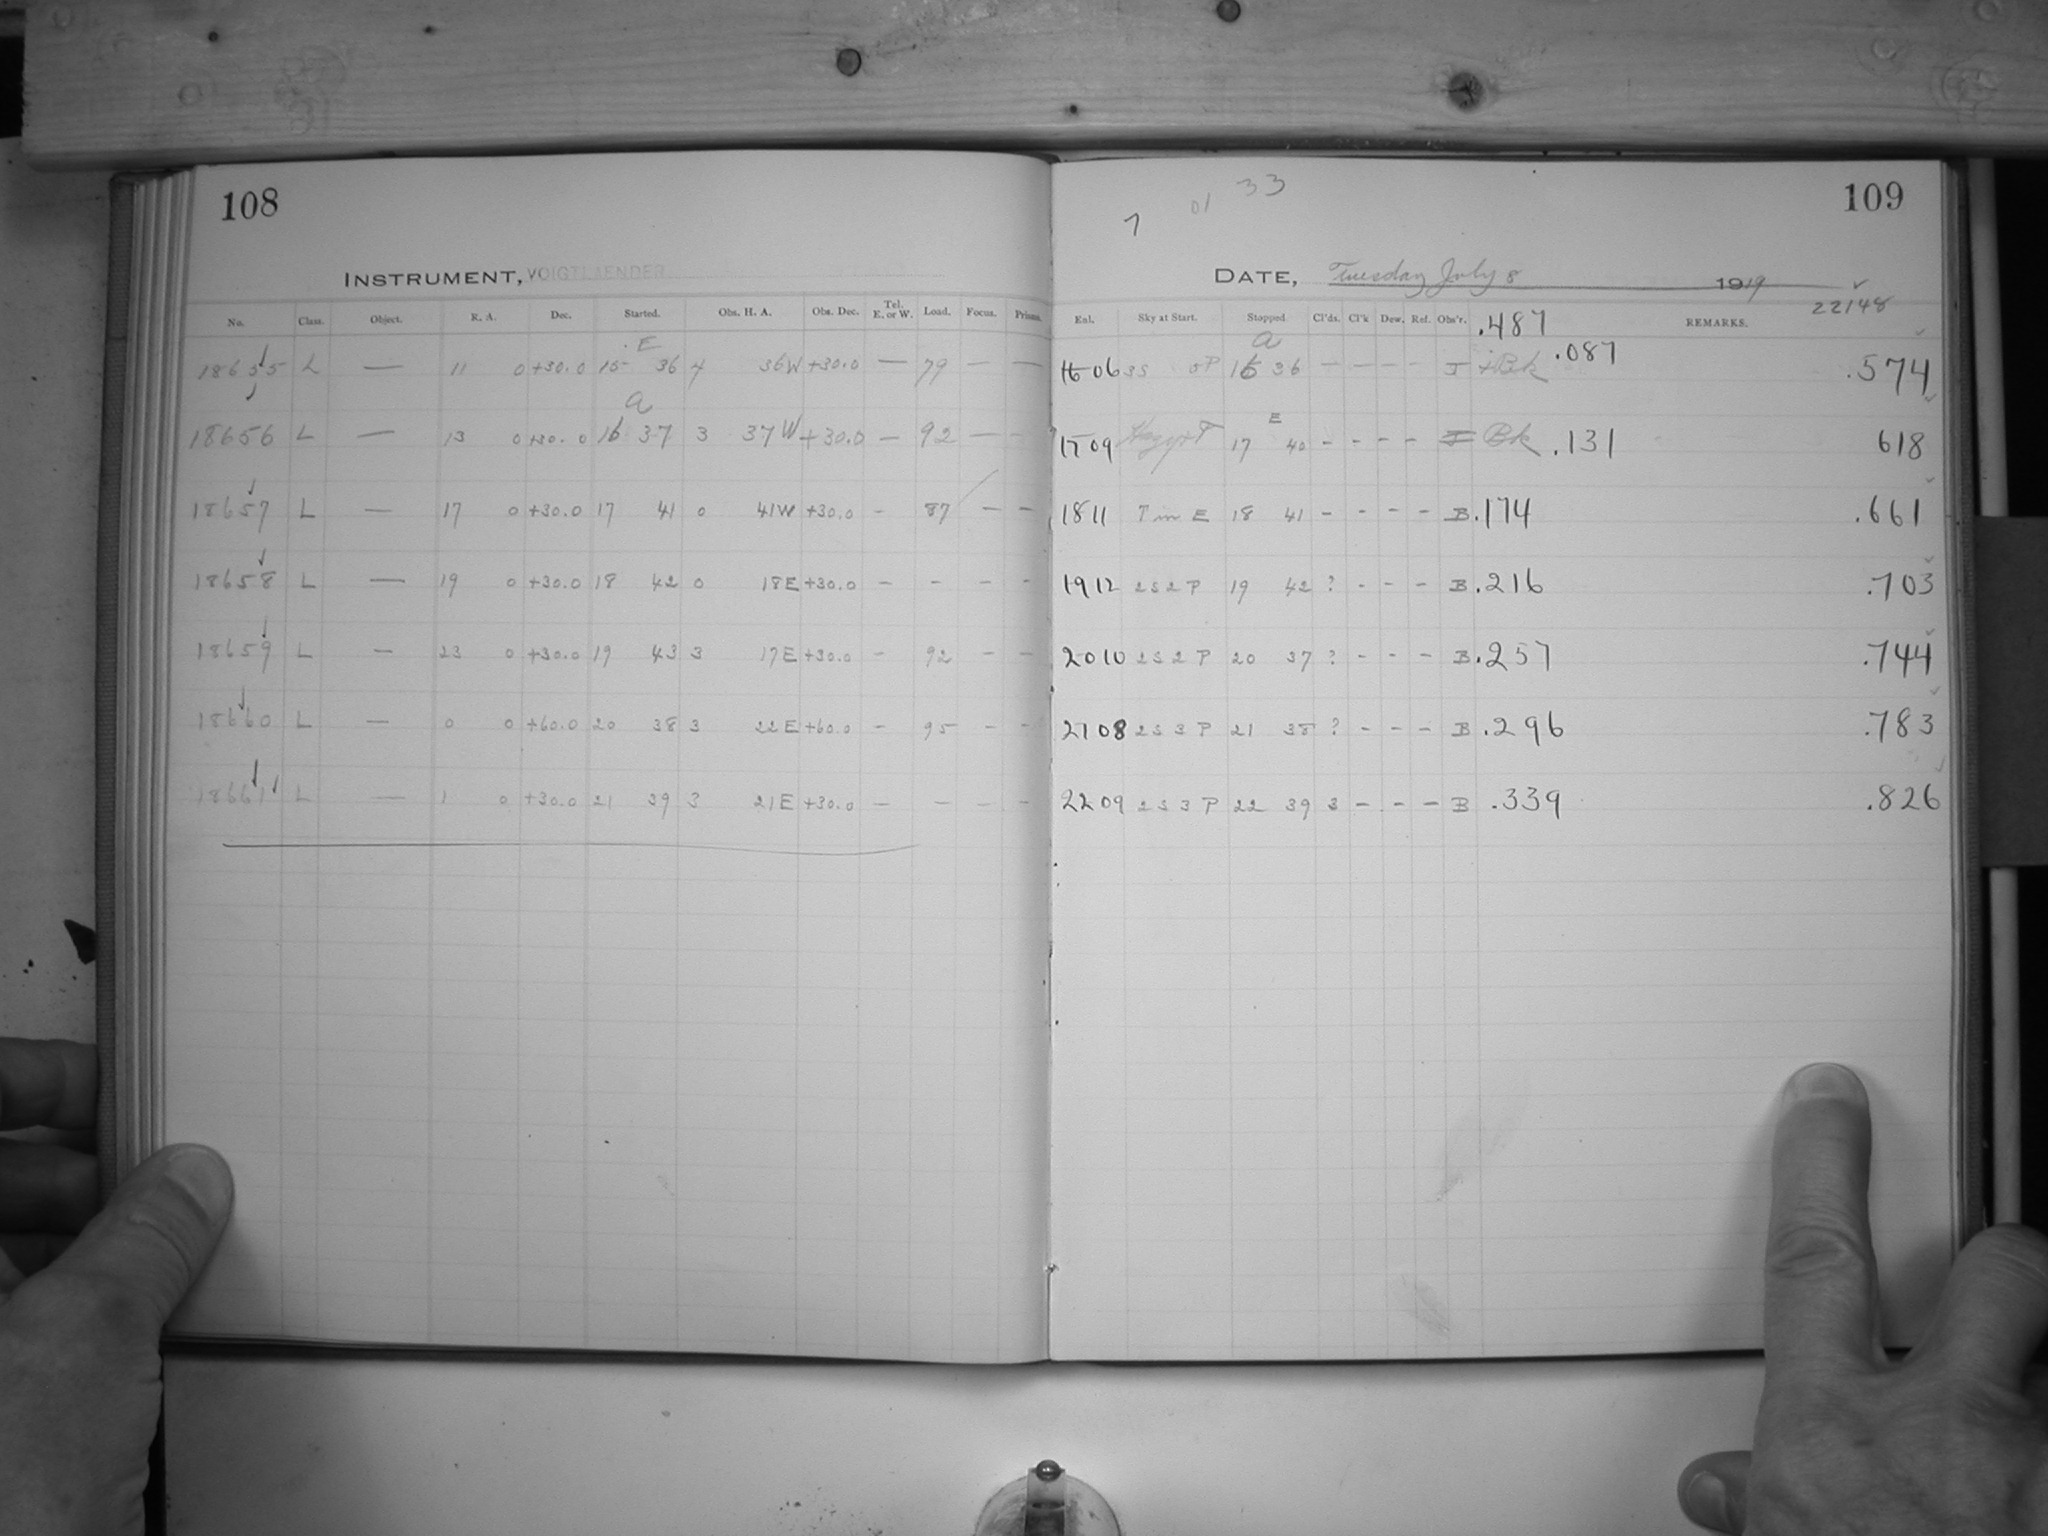 108
INSTRUMENT, VOIGTLAENDER
No. Class. Object. R. A. Dec. Started. Obs. H. A. Obs. Dec. Tel. E. or W. Load. Focus. Prisms.
E
18655 L — 11 0 +30.0 15 36 4 36W +30.0 — 79 — —
a
18656 L — 13 0 +30.0 16 37 3 37W +30.0 — 92 — -
18657 L — 17 0 +30.0 17 41 0 41W +30.0 - 87 — —
18658 L — 19 0 +30.0 18 42 0 18E +30.0 - - - -
18659 L — 23 0 +30.0 19 43 3 17E +30.0 - 92 - -
18660 L — 0 0 +60.0 20 38 3 22E +60.0 - 95 - -
18661 L — 1 0 +30.0 21 39 3 21E +30.0 — - - -
7 01 33
109
DATE, Tuesday July 8 1919
22148
Enl. Sky at Start. Stopped. Cl'ds. Cl'k Dew. Ref. Obs'r. .487 REMARKS.
a
1606 3S 5P 16 36 - - - - J +Bk .087 .574
E
1709 17 40 - - - - Bk .131 618
1811 P in E 18 41 - - - - B .174 .661
1912 2S 2P 19 42 ? - - - B .216 .703
2010 2S 2P 20 37 ? - - - B .257 .744
2108 2S 3P 21 38 ? - - - B .296 .783
2209 2S 3P 22 39 3 - - - B .339 .826